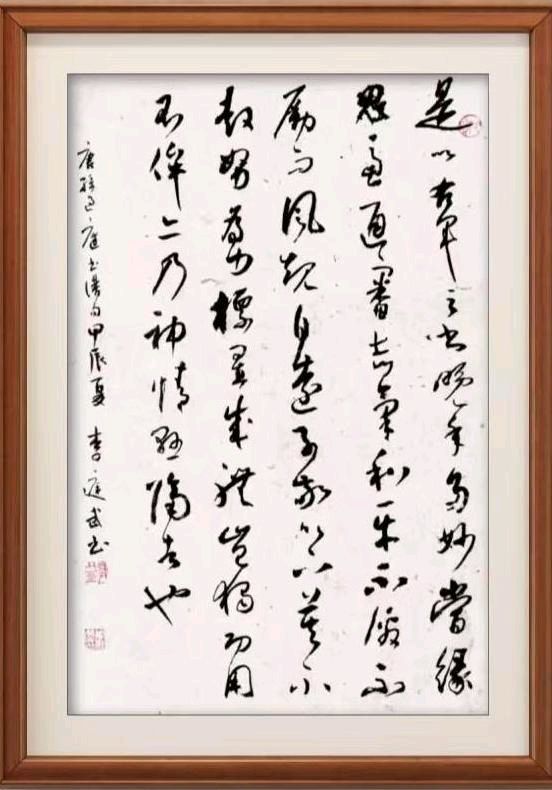 是以右軍之書晚年多妙當緣
思慮通審志氣和平不激不
勵而風規自遠子敬以下莫不
鼓努為力標置成體豈獨功用
不侔亦乃神情懸隔者也
唐孫過庭書譜句甲辰夏李庭武書